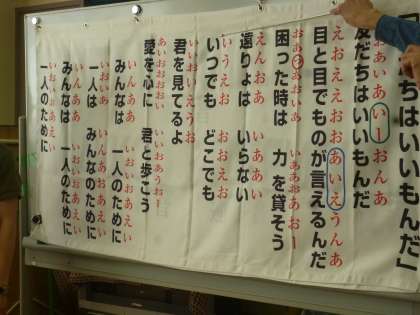 ちはいいもんだ」
おあいあ いーおんあ
友だちはいいもんだ
えおええおお あいえうんあ
目と目でものが言えるんだ
おあっあおいあ いああおあおー
困った時は 力を貸そう
えんおあ いああい
遠りょは いらない
いうえお おおえお
いつでも どこでも
いいおいえうお
君を見てるよ
あいおおおおい いいおあうおー
愛を心に 君と歩こう
いんああ いおいおあえい
みんなは 一人のために
いおいあ いんあおあえい
一人は みんなのために
いんああ いおいおあえい
みんなは 一人のために
いおいおあえい
一人のために